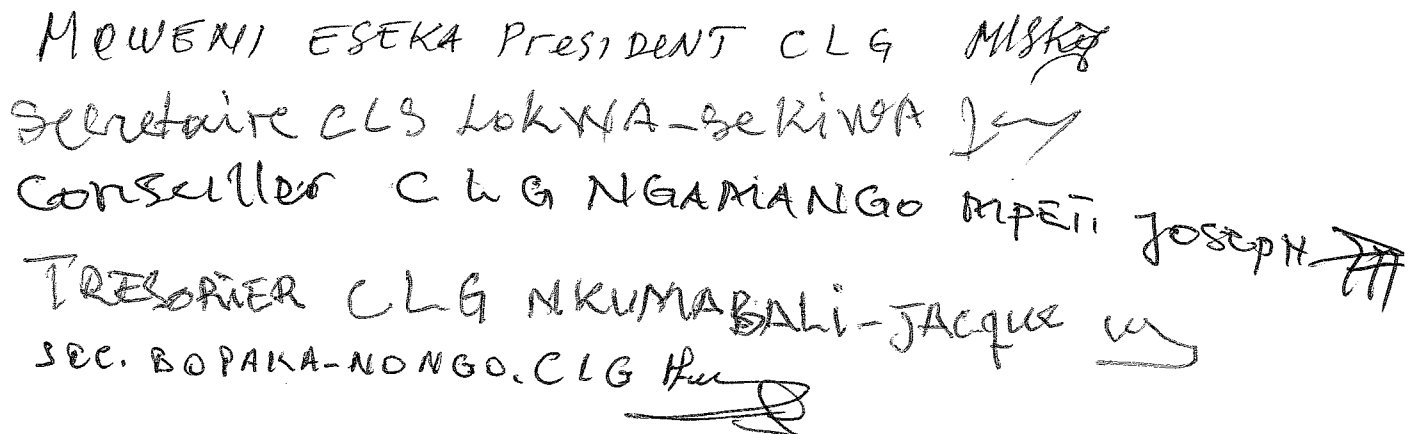 MOWENI ESEKA PresiDENT CLG
Secretaire CLS LOKWA-SEKiWA
Conseiller CLG NGAMANGO MPETI JOSEPH
TRESORIER CLG NKUMABALi-JAcque
Sec. BOPAKA-NONGO. CLG